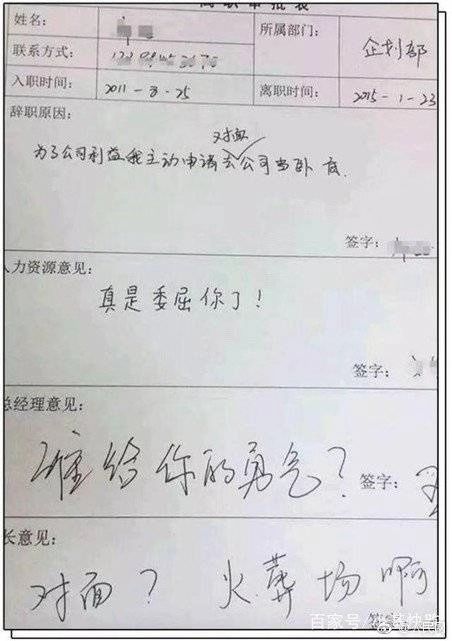 离职审批表
姓名：
所属部门：
企划部
联系方式：
入职时间：
2011-8-25
离职时间：
2015-1-23
辞职原因：
对面
为了公司利益我主动申请去公司当卧底.
签字：
人力资源意见：
真是委屈你了！
签字：
总经理意见：
谁给你的勇气？
签字：
长意见：
对面？ 火葬场啊
百家号